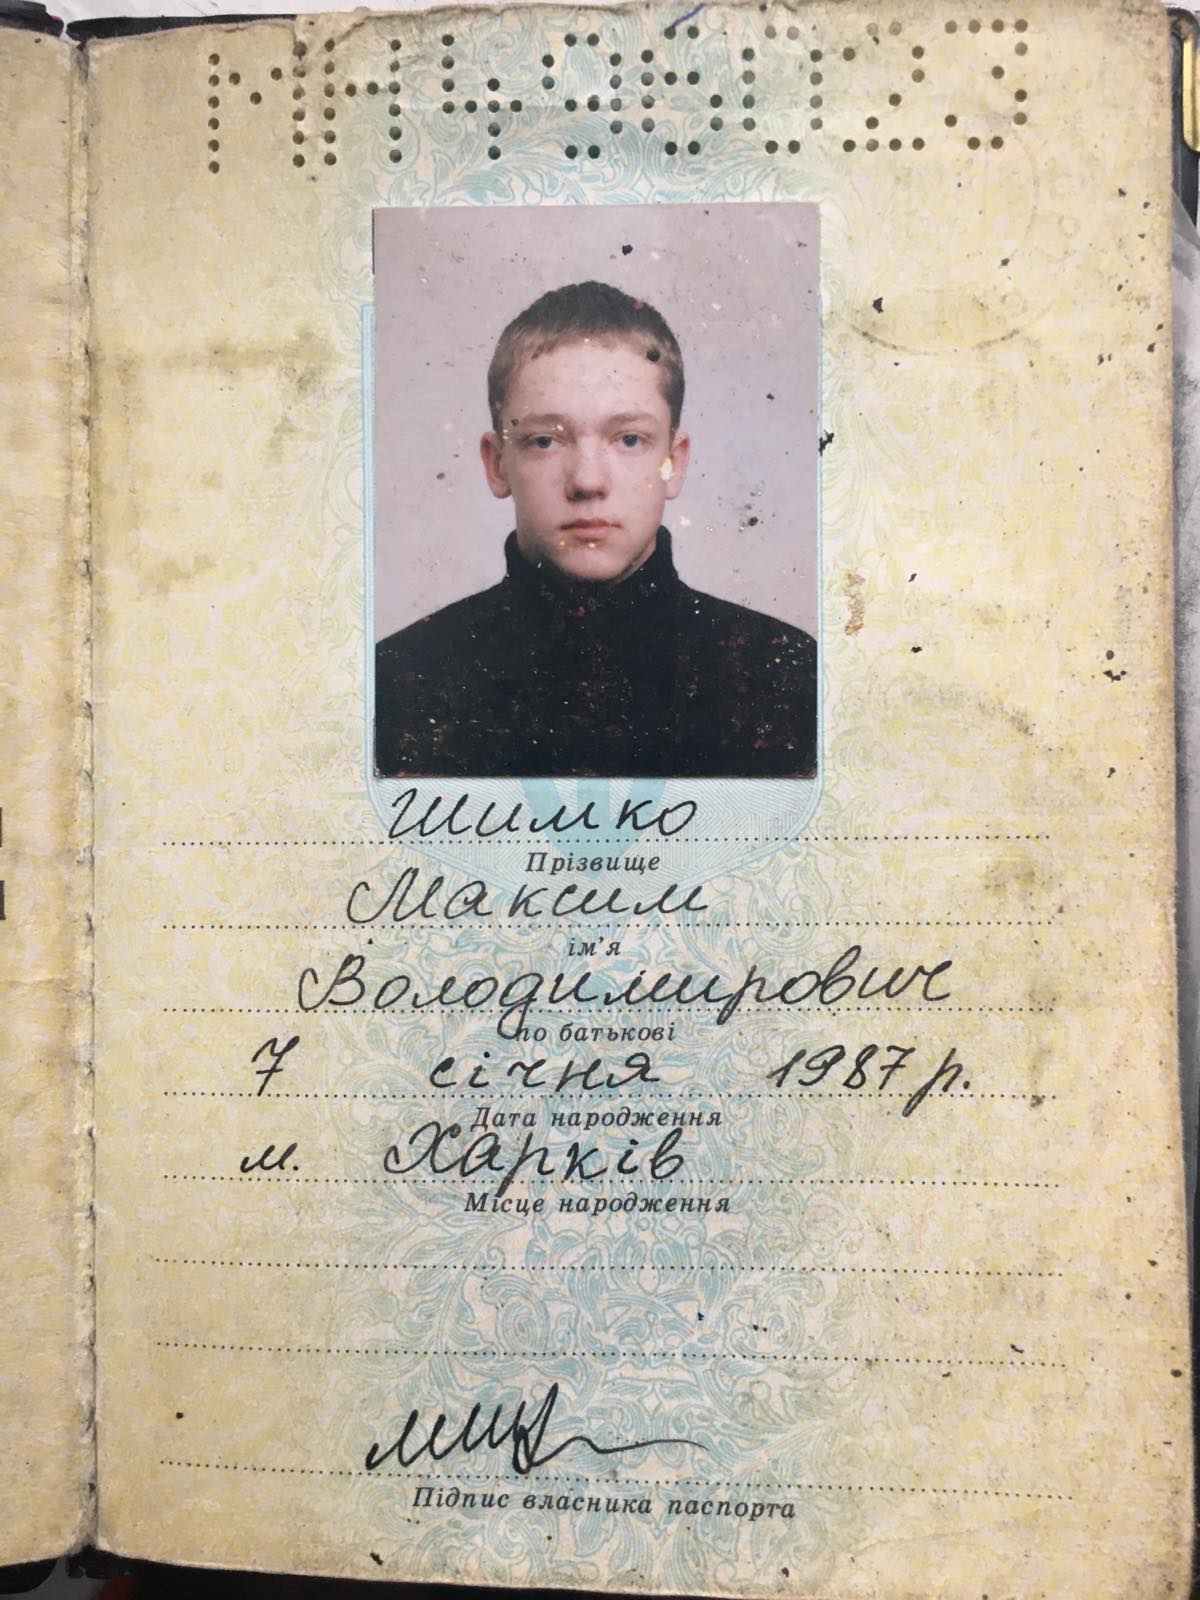 МН496023
Шимко
Прізвище
Максим
ім'я
Володимирович
по батькові
7 січня 1987 р.
Дата народження
м. Харків
Місце народження
Підпис власника паспорта